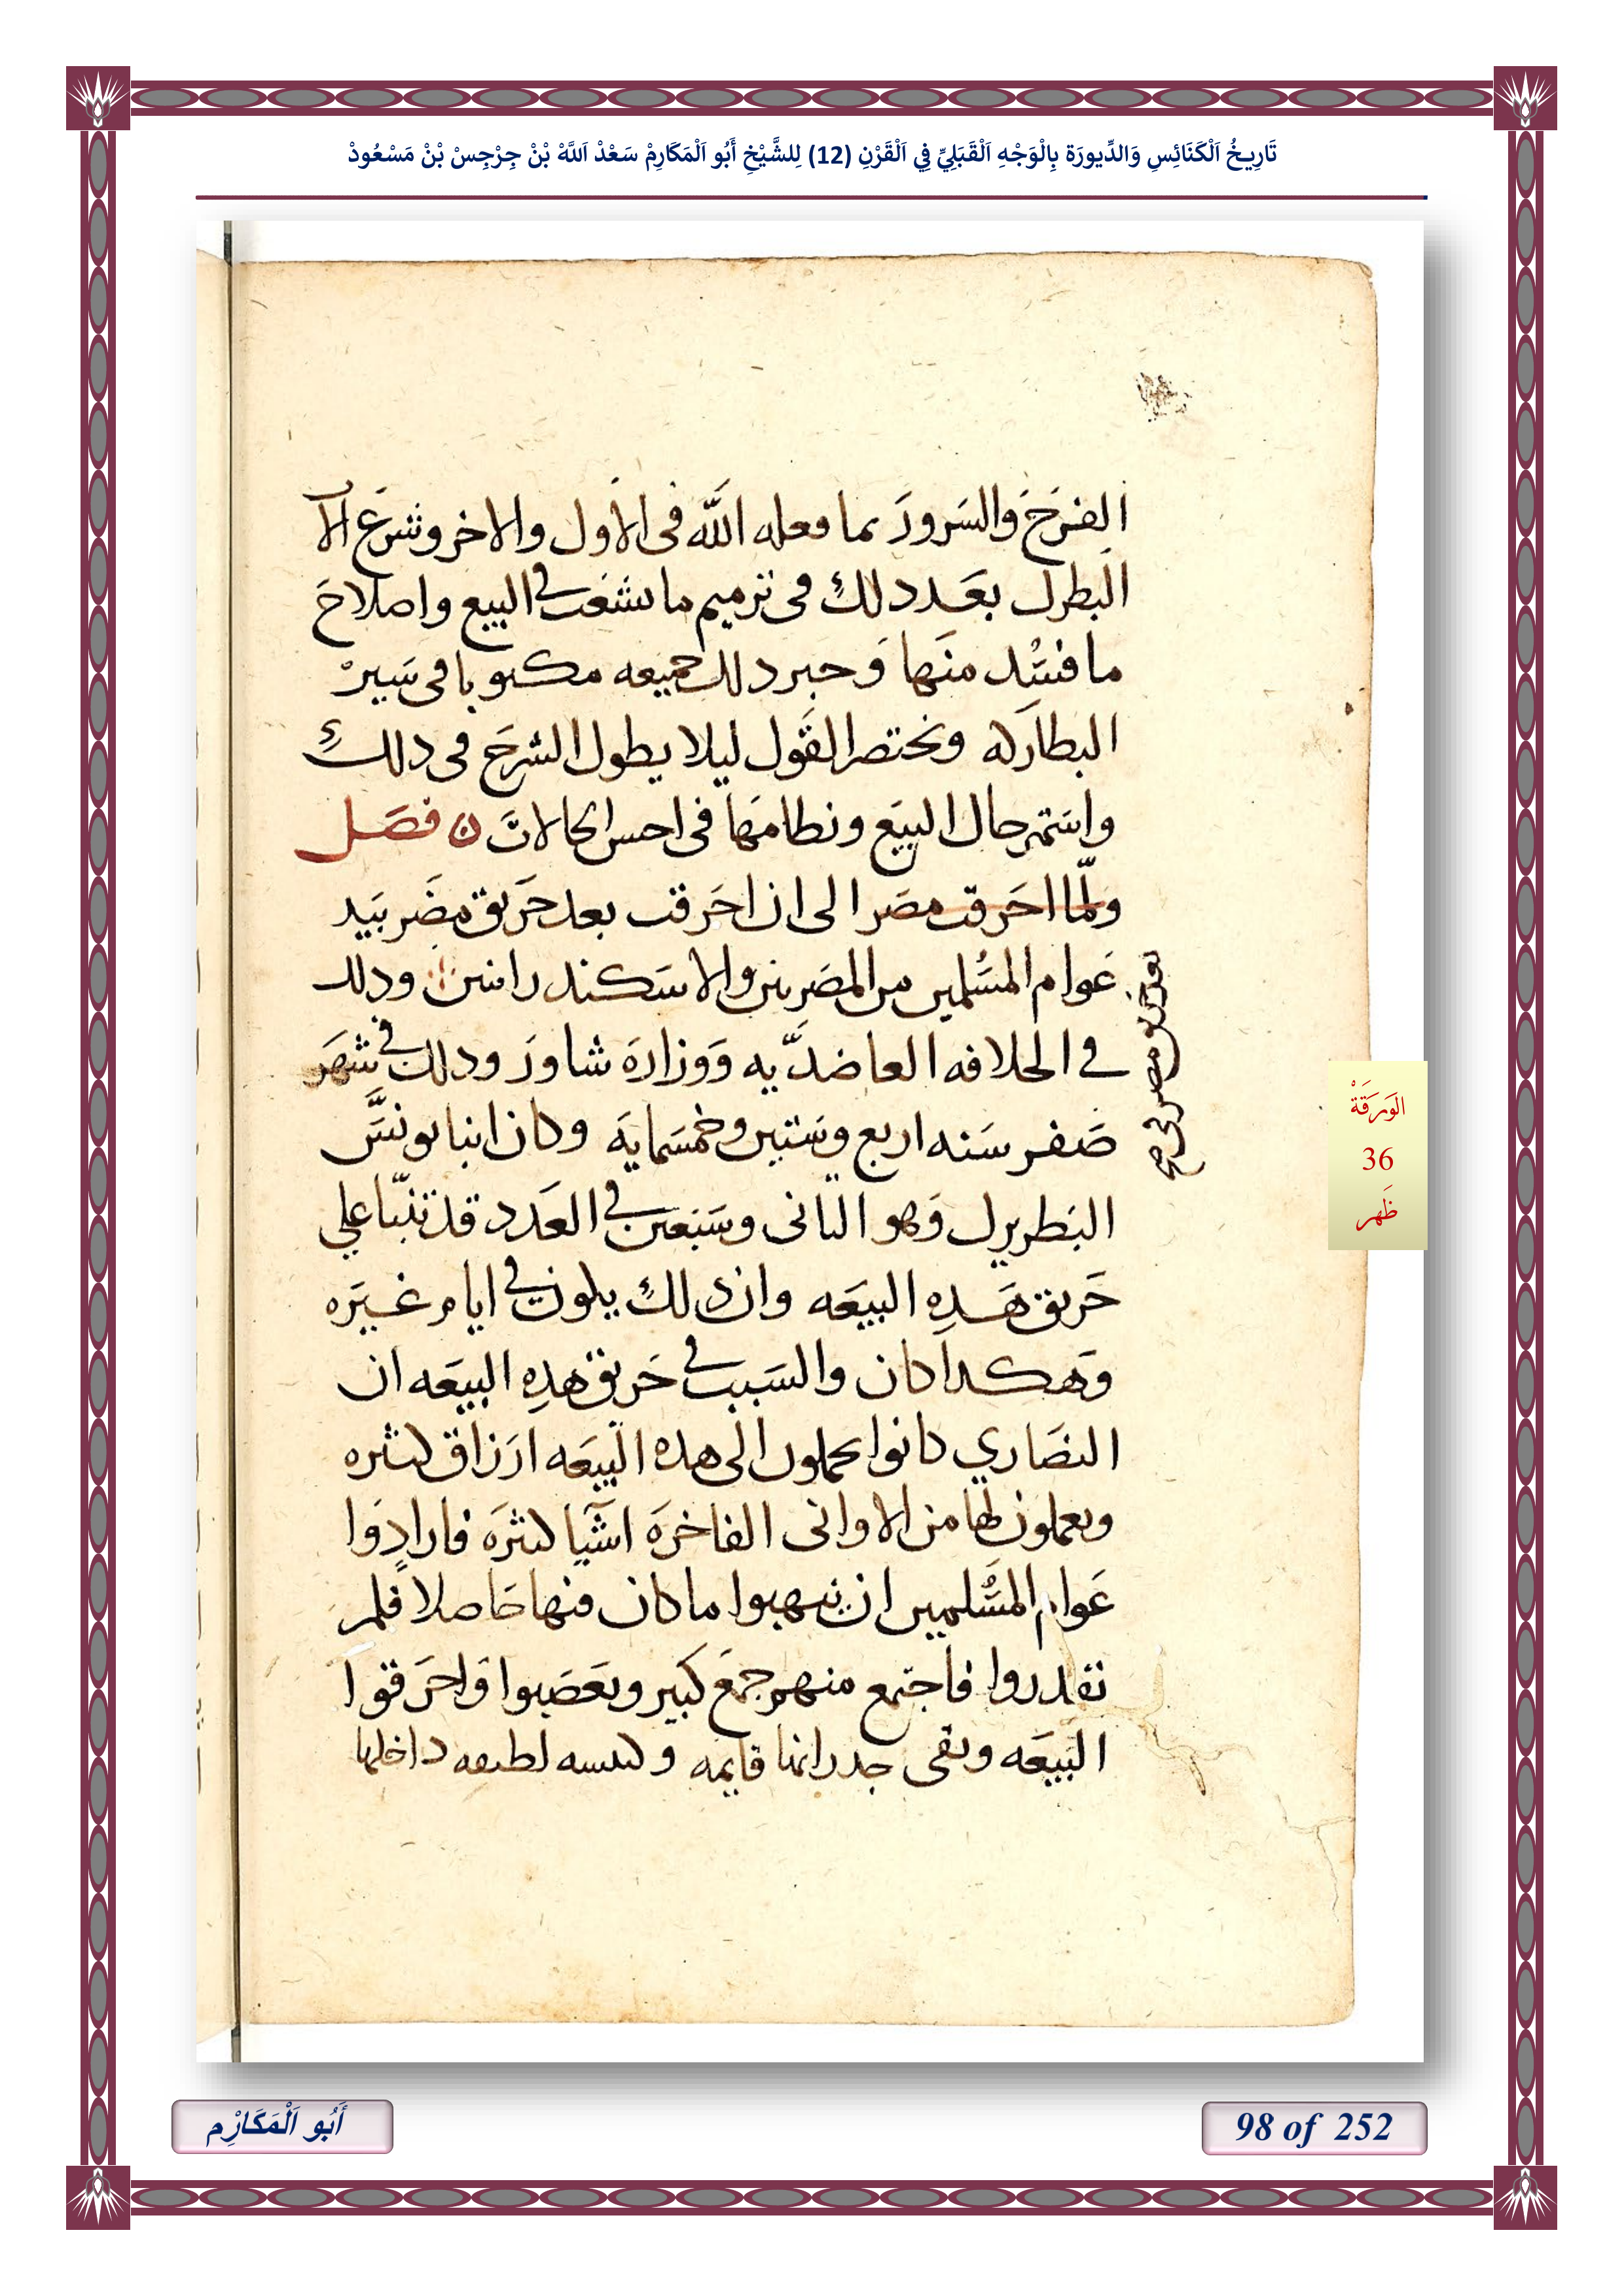 تَارِيخُ اَلْكَنَائِسِ وَالدِّيورَة بِالْوَجْهِ اَلْقَبَلِيِّ فِي اَلْقَرْنِ (12) لِلشَّيْخِ أَبُو اَلْمَكَارِمْ سَعْدْ اَللَّهْ بْنْ جِرْجِسْ بْنْ مَسْعُودْ
الفرَحَ والسَرورَ بما فعله اللّه فى الاول والاخر وشرع الآ
البطرك بعَد دلك فى ترميم ما تشعت فى البيع واصلاحَ
ما فسَد منَها وَخبر دلك جميعه مكتوبا فى سَيرْ
البطاركه ونختصر القول ليلا يطول الشرحَ فى دلك
واستَمر حال البيعَ ونطامهَا فى احسن الحالات ن فصَل
ولّما احَرقت مصَر الى ان احَرقت بعد حَريق مصَر بيَد
عَوام المسُلمين من المصَريين والاسَكندرانيين ودلك
في الخلافه العاضدَّيه وَوزارة شاورَ ودلك في شهَر
صَفر سَنه اربع وستين وخمسَمايَه وكان انبا يونسَّ
البَطريرك وَهو التانى وسَبعين في العَدد قد تنبّا علي
حَريق هَدِه البيعَه وان دلك يكون في ايام غيَره
وَهكدا كان والسَبب في حَريق هدِه البيعَه ان
النصَاري كانوا يحملون الى هده البيعَه ارَزاق كتيره
ويعملون لها من الاوانى الفاخرَه اشَيا كتيرَه فارادوَا
عَوام المسُلمين ان ينهبوا ما كان فنها حَاصلا فلم
يقدروا فاجتمع منهم جمعَ كبير وتعَصَبوا وَاحرَقوا
البَيعَه وبقى جدرانها قايمه وكنيسه لطيفه داخلها
بعد حريق مصر
الوَرَقَةْ
36
ظَهر
أَبُو اَلْمَكَارِْم
98 of 252